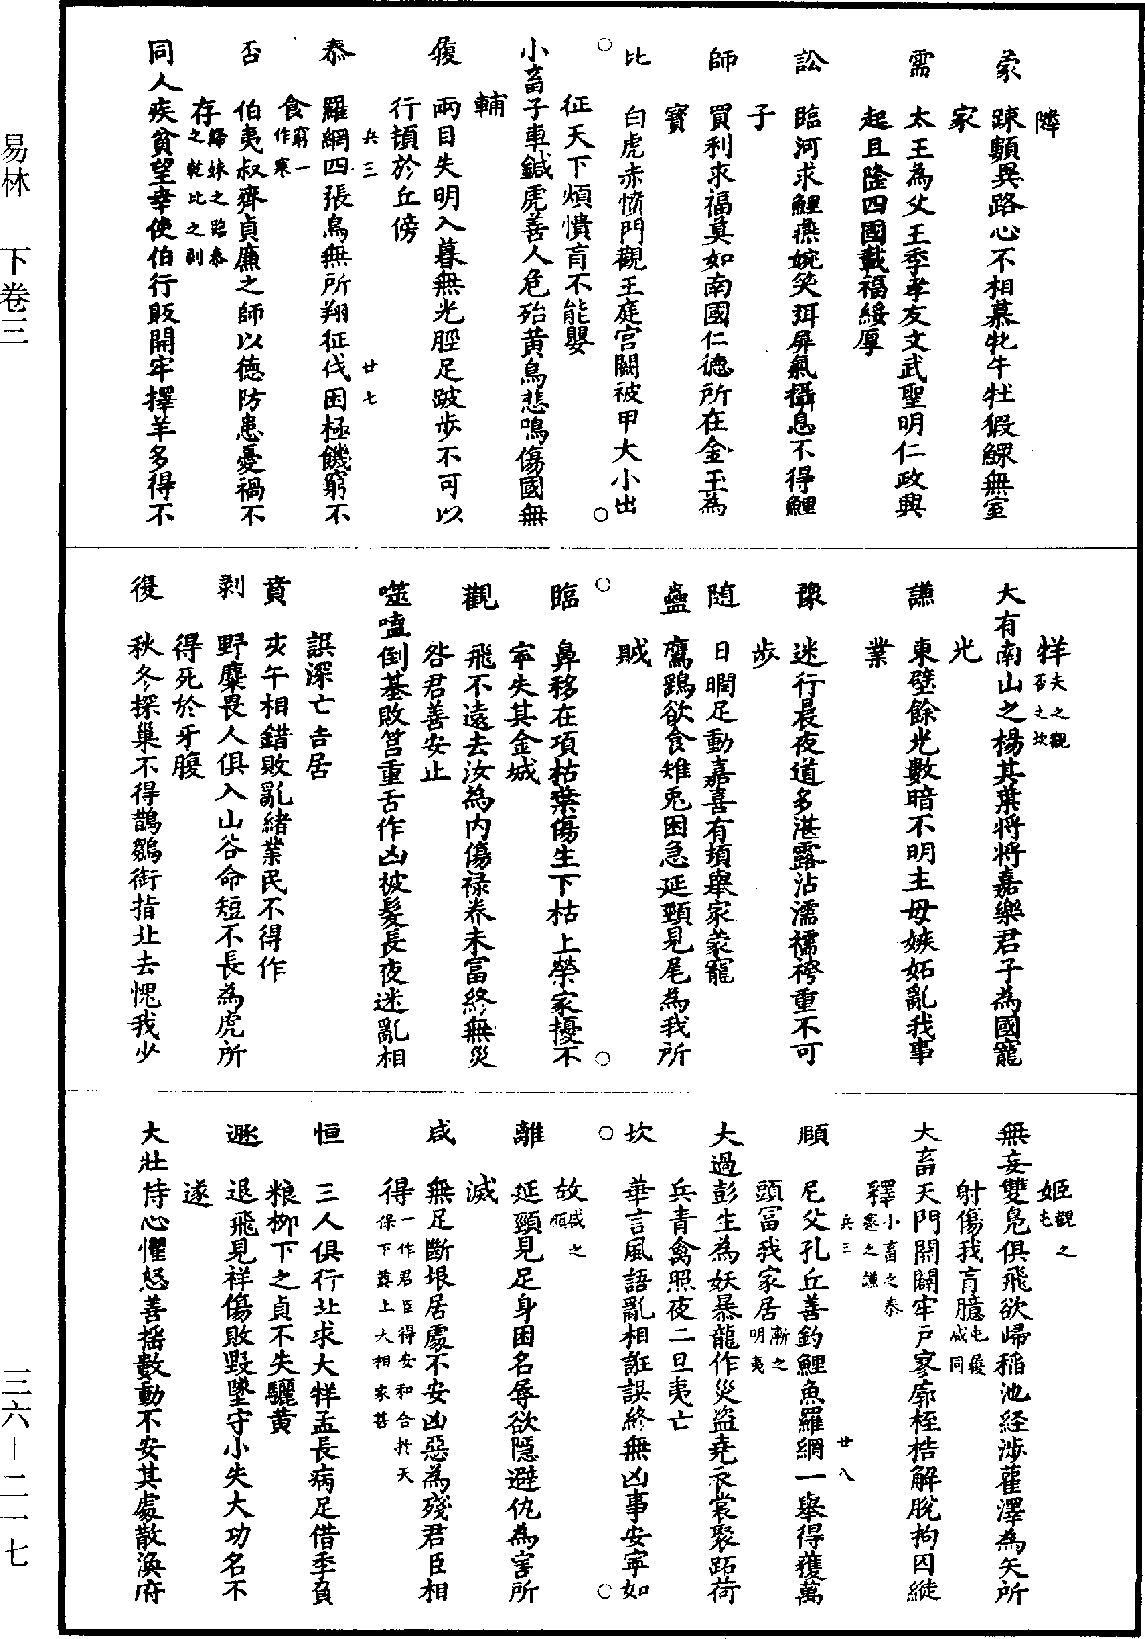 隣
蒙　踈顆異路心不相慕牝牛牡猳鰥無室
家
需　太王為父王季孝友文武聖明仁政興
起且隆四國載福綏厚
訟　臨河求鯉燕婉笑弭屏氣攝息不得鯉
子
師　買利求福莫如南國仁德所在金玉為
寶
比　白虎赤憤門觀王庭宮闕被甲大小出
征天下煩憒育不能嬰
小畜子車鍼虎善人危殆黃鳥悲鳴傷國無
輔
履　兩目失明入暮無光脛足跛步不可以
行頓於丘傍
兵三　廿七
泰　羅網四張鳥無所翔征伐困極饑窮不
食窮一作寒
否　伯夷叔齊貞廉之師以德防患憂禍不
存歸妹之臨泰之乾比之剝
同人疾貧望幸使伯行販開牢擇羊多得不
牂夬之觀否之坎
大有南山之楊其葉將將嘉樂君子為國寵
光
謙　東壁餘光數暗不明主母嫉妬亂我事
業
豫　迷行晨夜道多湛露沾濡襦袴重不可
步
隨　日瞷足動嘉喜有頃舉家蒙寵
蠱　鷹鷂欲食雉兎困急延頸見尾為我所
賊
臨　鼻移在項枯葉傷生下枯上榮家擾不
寧失其金城
觀　飛不遠去汝為內傷祿養未富終無災
咎君善安止
噬嗑倒基敗筥重舌作凶披髮長夜迷亂相
誤深亡吉居
賁　亥午相錯敗亂緒業民不得作
剝　野麋畏人俱入山谷命短不長為虎所
得死於牙腹
復　秋冬探巢不得鵲鶵銜指北去愧我少
姬觀之屯
無妄雙鳧俱飛欲歸稻池經涉雚澤為矢所
射傷我胷臆屯復咸同
大畜天門開闢牢戶寥廓桎梏解脫拘囚縱
釋小畜之泰蠱之謙
兵三　廿八
頤　尼父孔丘善釣鯉魚羅網一舉得獲萬
頭富我家居漸之明夷
大過彭生為妖暴龍作災盜堯衣裳聚跖荷
兵青禽照夜二旦夷亡
坎　華言風語亂相誑誤終無凶事安寧如
故咸之頤
離　延頸見足身困名辱欲隱避仇為害所
滅
咸　無足斷垠居處不安凶惡為殘君臣相
得一作君臣得安和合於天保下輔上大相家甚
恒　三人俱行北求大牂孟長病足借季負
粮柳下之貞不失驪黃
遯　退飛見祥傷敗毀墜守小失大功名不
遂
大壯恃心懼怒善搖數動不安其處散渙府
易林　下卷三
三六－二一七